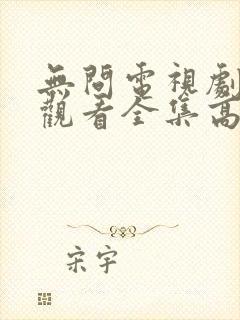 無間電視劇
觀看全集高
宋宇